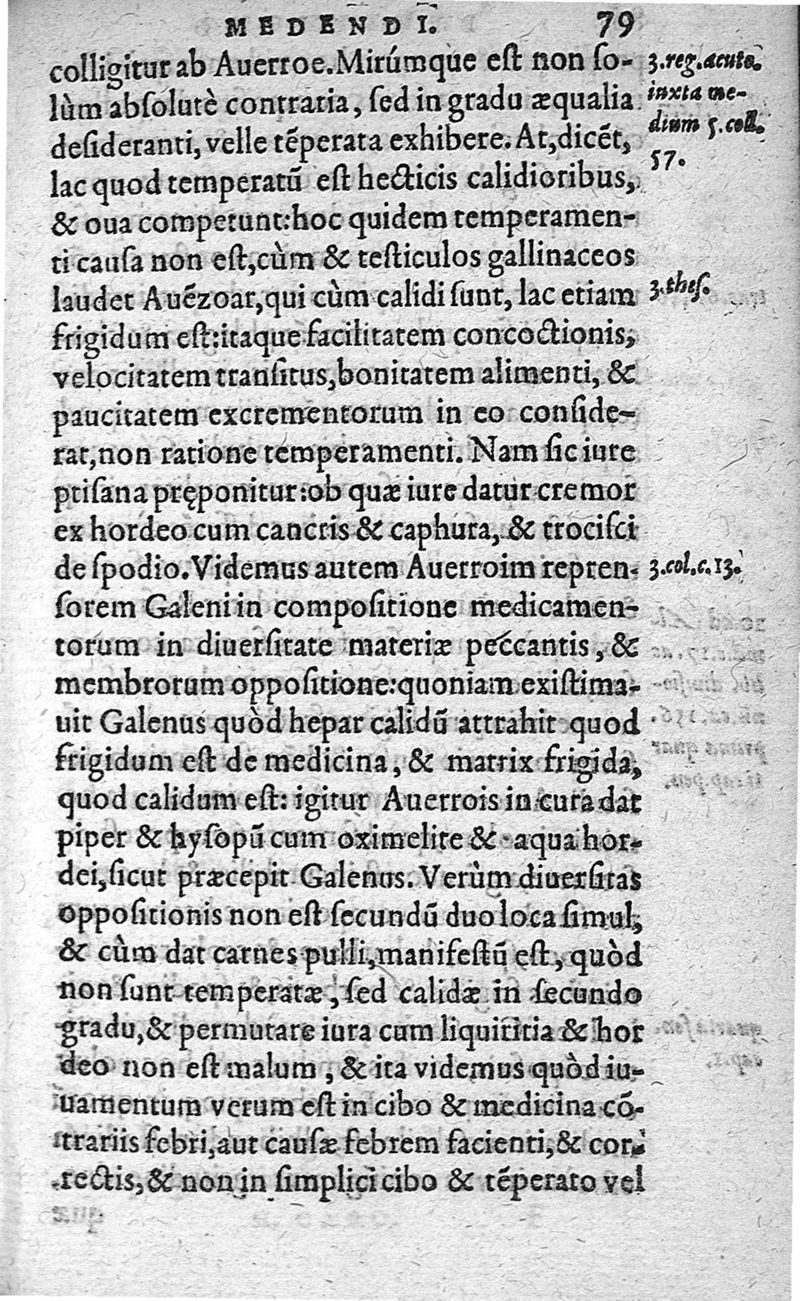 MEDENDI. 79
colligitur ab Auerroe. Mirúmque est non so-
lùm absolutè contraria, sed in gradu æqualia
desideranti, velle tẽperata exhibere. At, dicẽt,
lac quod temperatũ est hecticis calidioribus,
& oua competunt: hoc quidem temperamen-
ti causa non est, cùm & testiculos gallinaceos
laudet Auẽzoar, qui cùm calidi sunt, lac etiam
frigidum est: itaque facilitatem concoctionis,
velocitatem transitus, bonitatem alimenti, &
paucitatem excrementorum in eo conside-
rat, non ratione temperamenti. Nam sic iure
ptisana pręponitur: ob quæ iure datur cremor
ex hordeo cum cancris & caphura, & trocisci
de spodio. Videmus autem Auerroim repren-
sorem Galeni in compositione medicamen-
torum in diuersitate materiæ peccantis, &
membrorum oppositione: quoniam existima-
uit Galenus quòd hepar calidũ attrahit quod
frigidum est de medicina, & matrix frigida,
quod calidum est: igitur Auerrois in cura dat
piper & hysopũ cum oximelite & aqua hor-
dei, sicut præcepit Galenus. Verùm diuersitas
oppositionis non est secundũ duo loca simul,
& cùm dat carnes pulli, manifestũ est, quòd
non sunt temperatæ, sed calidæ in secundo
gradu, & permutare iura cum liquiritia & hor
deo non est malum, & ita videmus quòd iu-
uamentum verum est in cibo & medicina cõ-
trariis febri, aut causæ febrem facienti, & cor-
rectis, & non in simplici cibo & tẽperato vel
quæ
3. reg. acuto.
iuxta me-
dium 5. coll.
57.
3. thes.
3. col. c. 13.